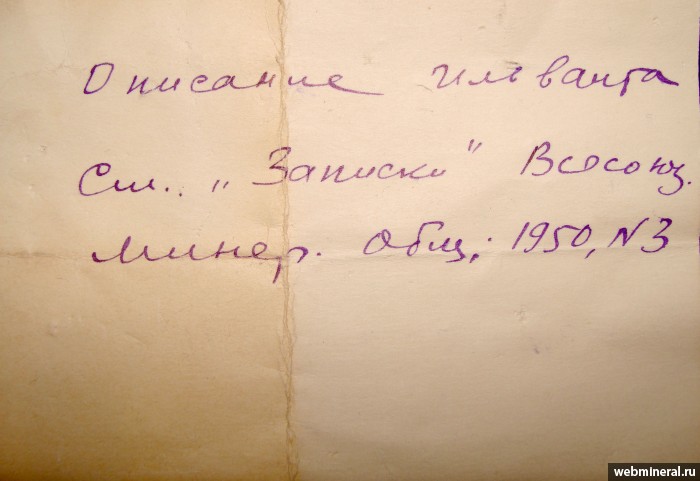 Описание ильваита
См. „Записки" Всесоюз.
Минер. Общ; 1950, N3
webmineral.ru